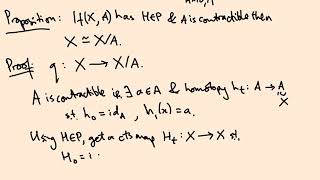 Proposition: If (X, A) has HEP & A is contractible then
X ≃ X/A.
Proof: q : X → X/A.
A is contractible i.e. ∃ a ∈ A & homotopy h_t : A → A
X
s.t. h_0 = id_A, h_1(x) = a.
Using HEP, get a cts map H_t : X → X s.t.
H_0 = i